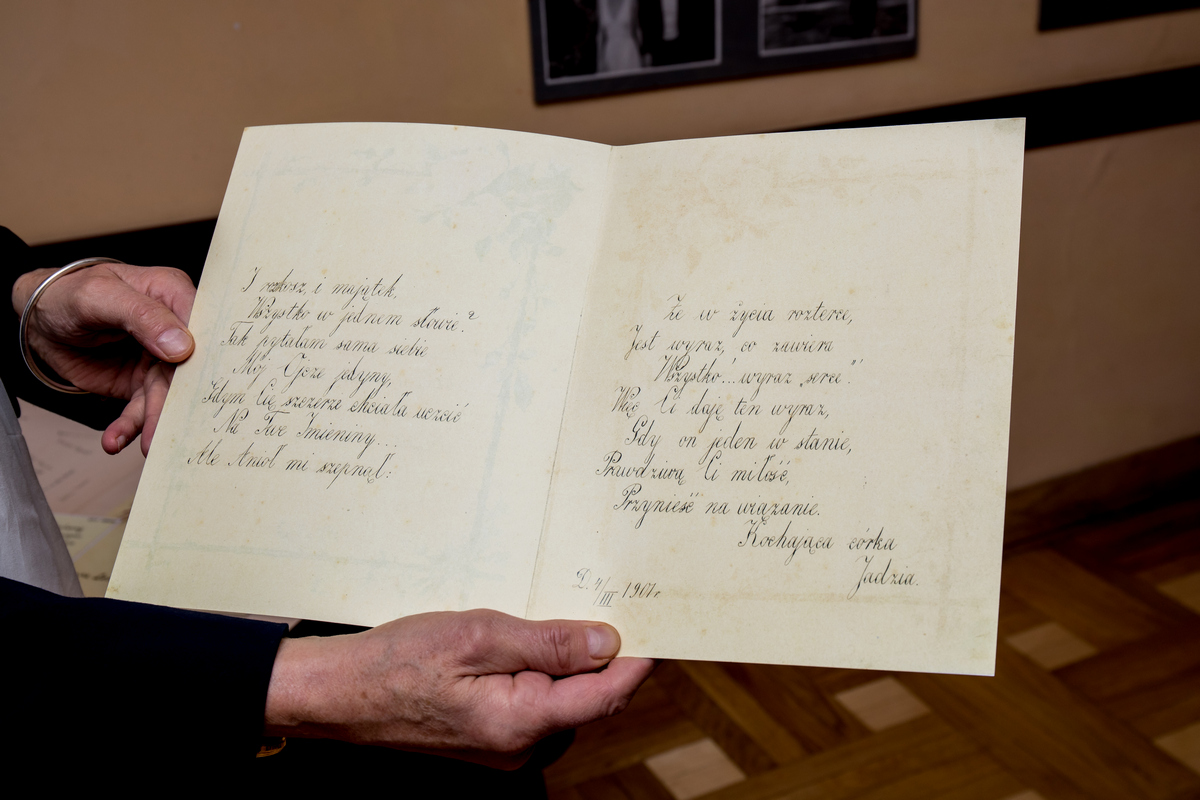 I rozkosz, i majątek,
Wszystko w jednem słowie?
Tak pytałam sama siebie
Mój Ojcze jedyny,
Gdym Cię szczerze chciała uczcić
Na Twe Imieniny...
Ale Anioł mi szepnął:
Że w życia rozterce,
Jest wyraz, co zawiera
Wszystko"... wyraz „serce".
Więc Ci daję ten wyraz,
Gdy on jeden w stanie,
Prawdziwą Ci miłość,
Przynieść na wiązanie.
Kochająca córka
Jadzia.
D. 4/III 1901 r